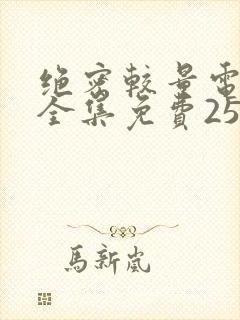 绝密较量電
全集免費25
馬新嵐